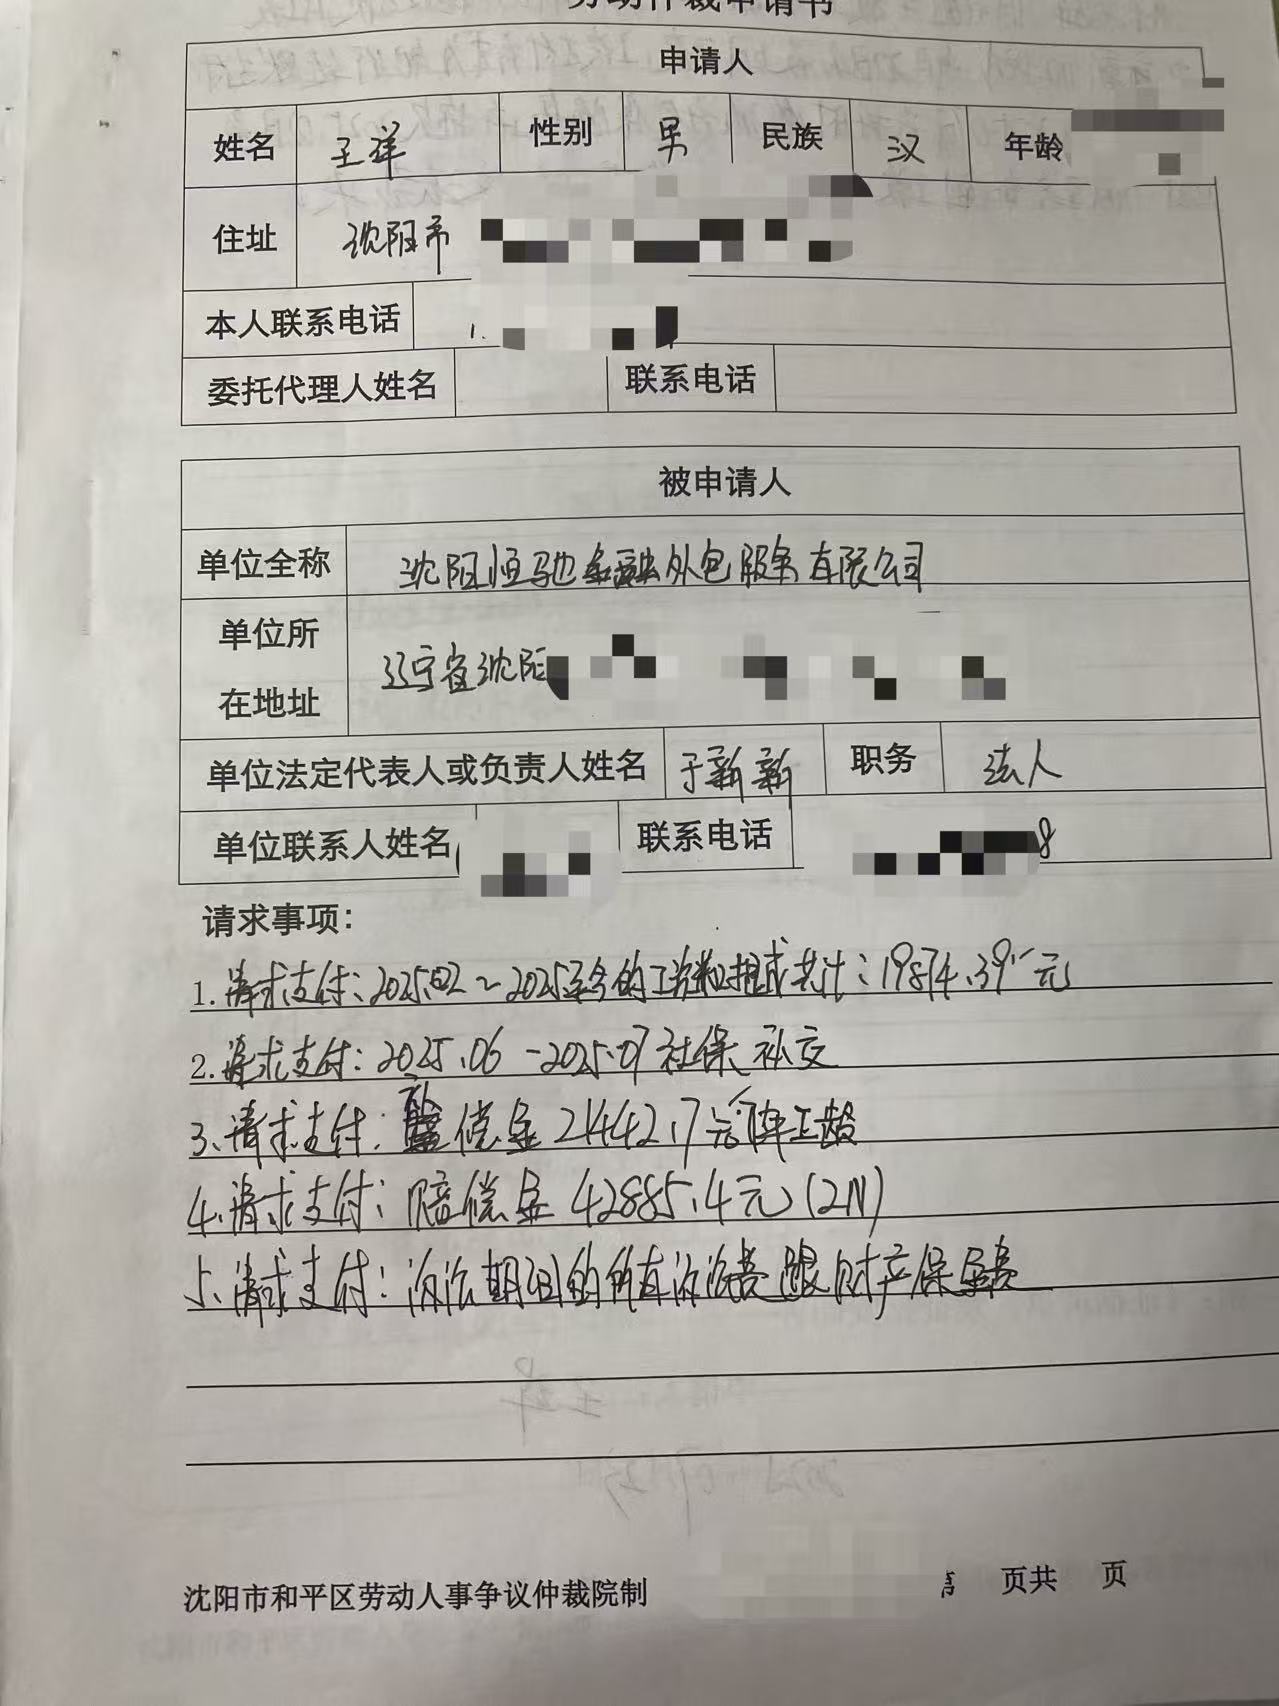 劳动仲裁申请书
申请人
姓名 王祥 性别 男 民族 汉 年龄
住址 沈阳市
本人联系电话 1.
委托代理人姓名 联系电话
被申请人
单位全称 沈阳恒驰金融外包服务有限公司
单位所
在地址 辽宁省沈阳
单位法定代表人或负责人姓名 于新新 职务 法人
单位联系人姓名 联系电话 8
请求事项：
1.请求支付：2025.02～2025至今的工资和提成共计：19874.39元
2.请求支付：2025.06-2025.07社保补交
3、请求支付：偿金21442.7元 工龄
4.请求支付：赔偿金 42885.4元(2N)
5、请求支付：期间的所有费跟财产保全费
沈阳市和平区劳动人事争议仲裁院制 页共 页